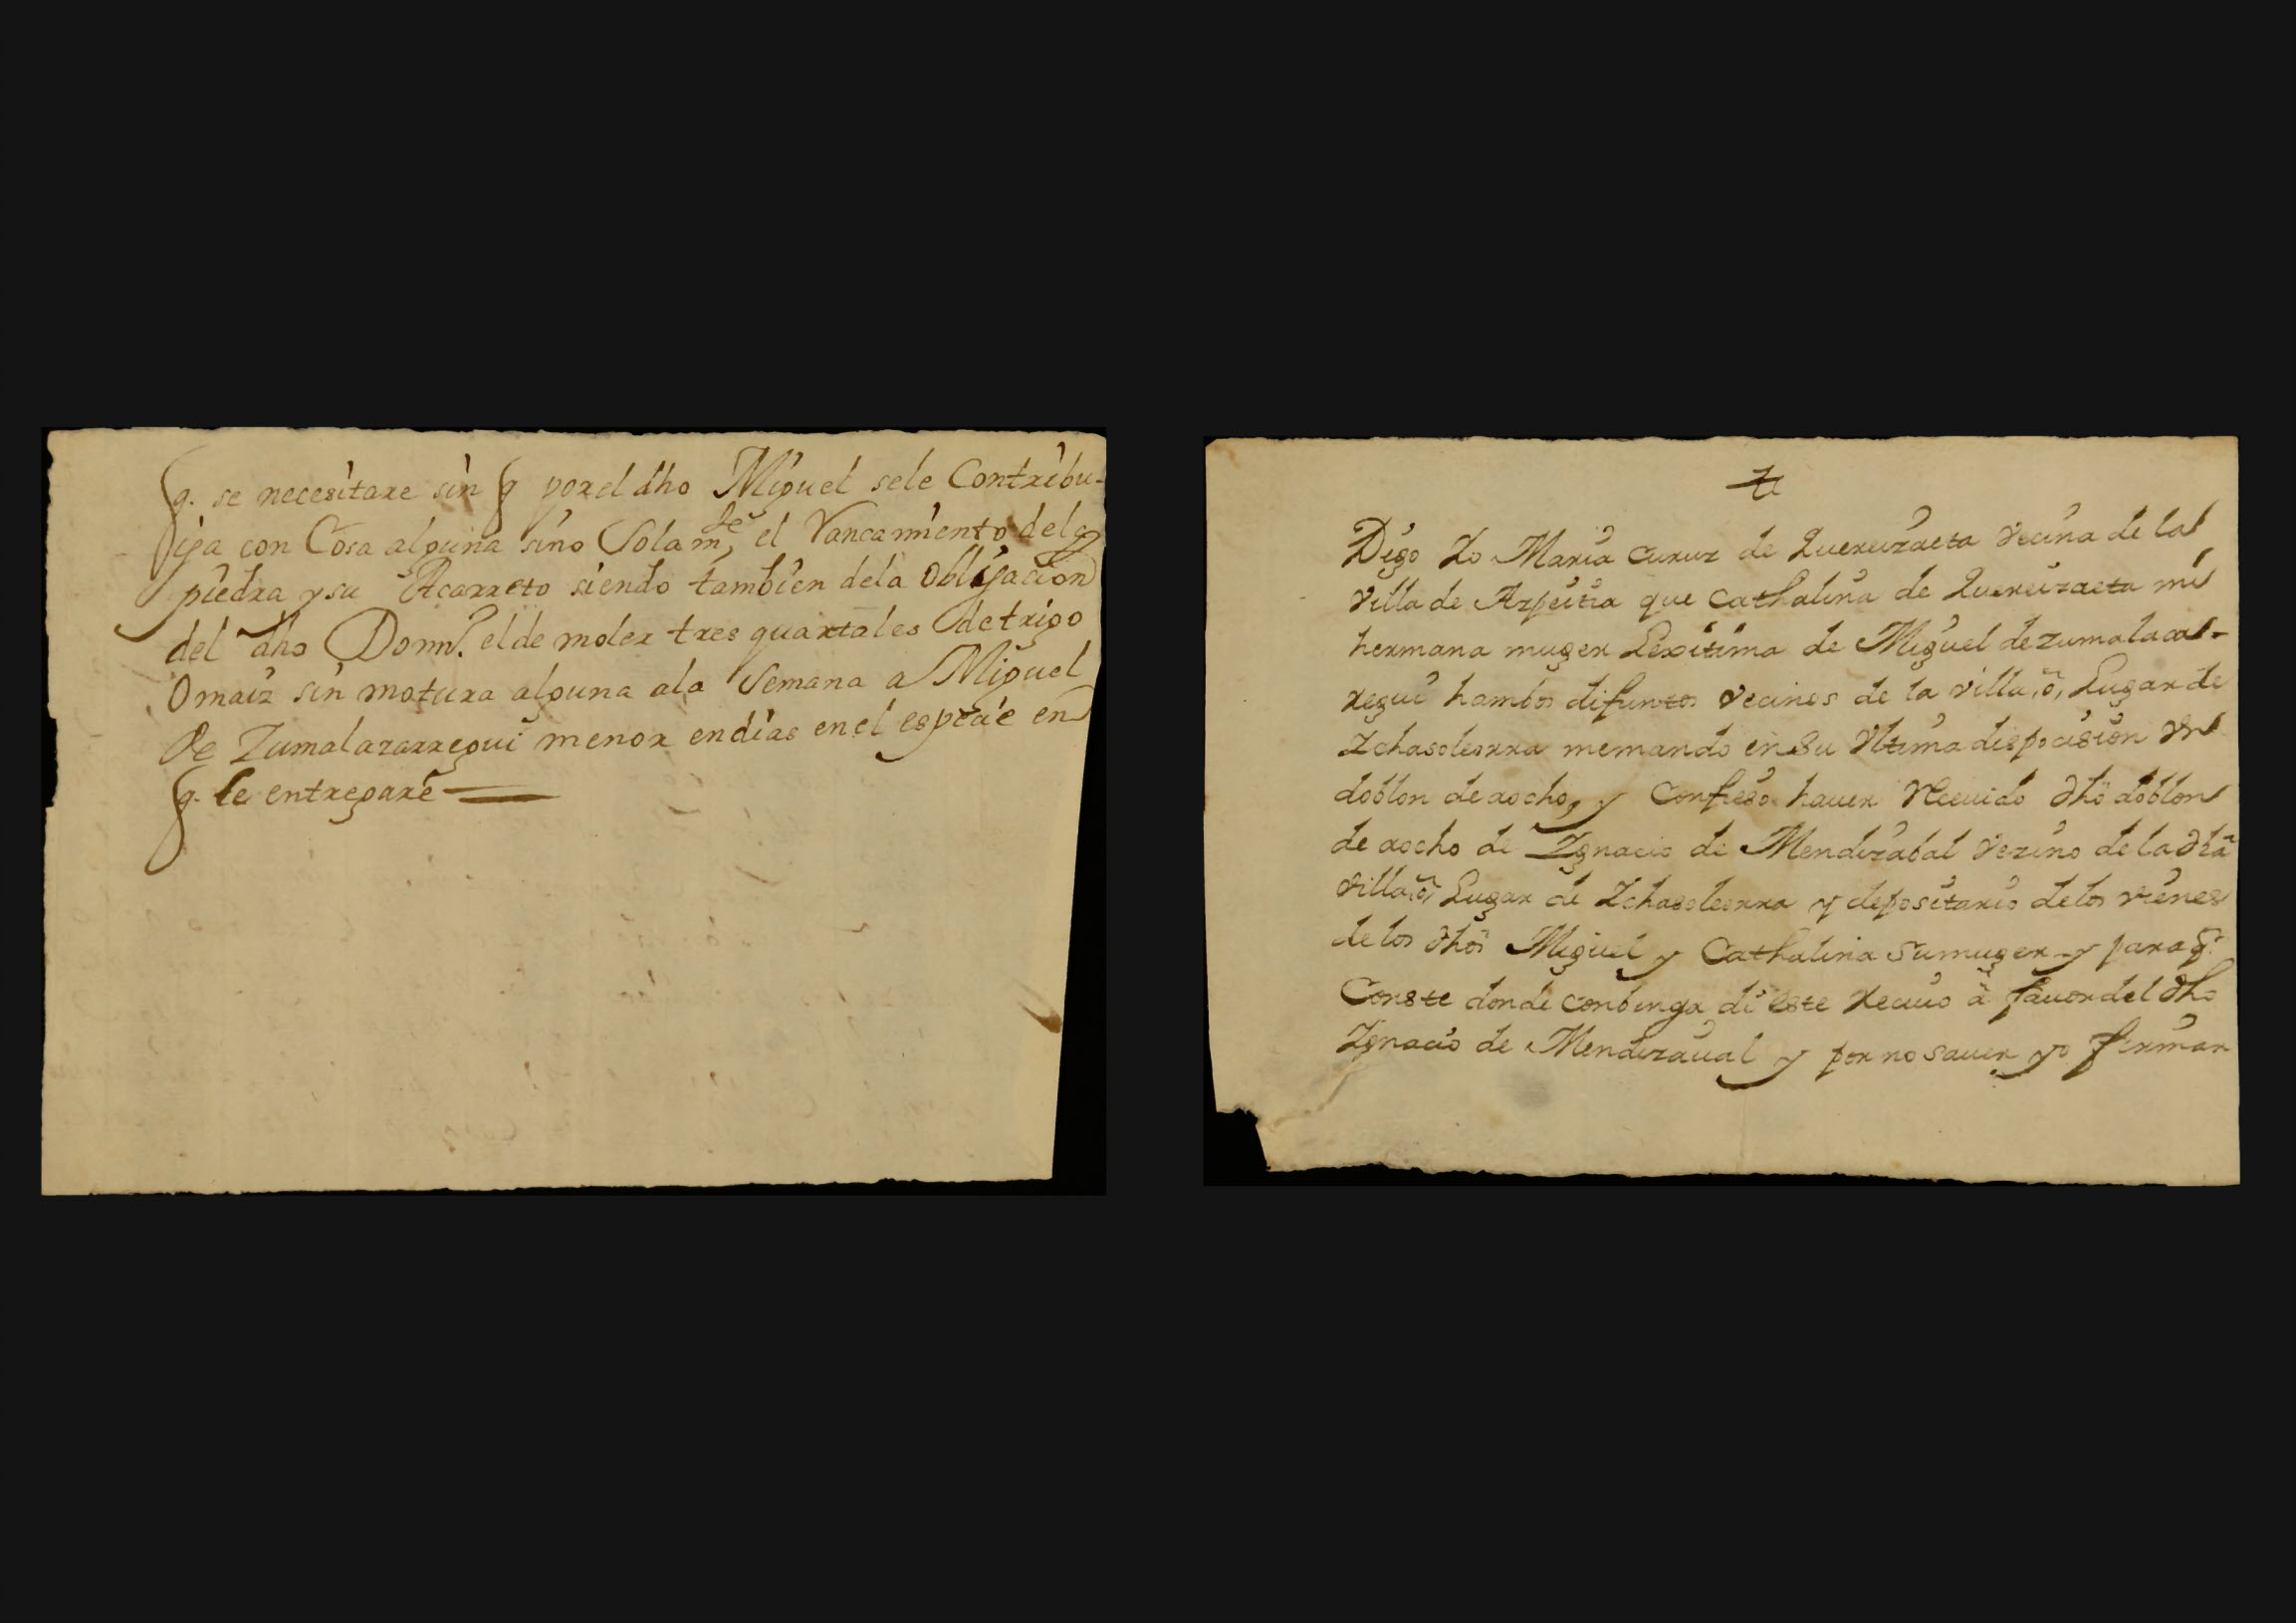 q. se necesitare sin q por el dho Miguel sele Contribu-
iga con Cosa alguna sino Solamte, el Vancamiento dela
piedra y su Acarreto siendo tambien dela obligacion
del dho Domn. el de moler tres quartales de trigo
O maiz sin motura alguna ala Semana a Miguel
De Zumalazarregui menor en dias en el espeçie en
q. le entregare
Digo Yo Maria Curuz de Quereizaeta Vecina de la
Villa de Azpeitia que Cathalina de Quereizaeta mi
hermana muger Lexitima de Miguel de zumalacar-
regui hambos difuntos Vecinos de la villa, ô, Lugar de
Ychasoleorra memando en Su Vltima dispocision Vn
doblon de aocho, y Confieso hauer Receuido dho doblon
de aocho de Ygnacio de Mendizabal Vezino de la dha
Villa, ô, Lugar de Ychasoleorra y depositario de los vienes
de los dhos Miguel y Cathalina Su muger y para q.
Conste donde conbenga di este Recuio â fauor del dho
Ygnacio de Mendizaual y por no sauer yo firmar